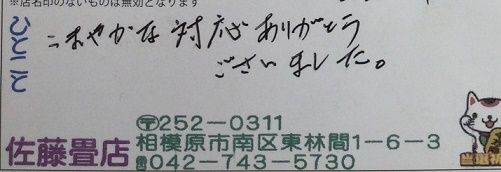 ※店名印のないものは無効となります
ひとこと
こまやかな対応ありがとう
ございました。
佐藤畳店
〒252-0311
相模原市南区東林間1-6-3
☎042-743-5730